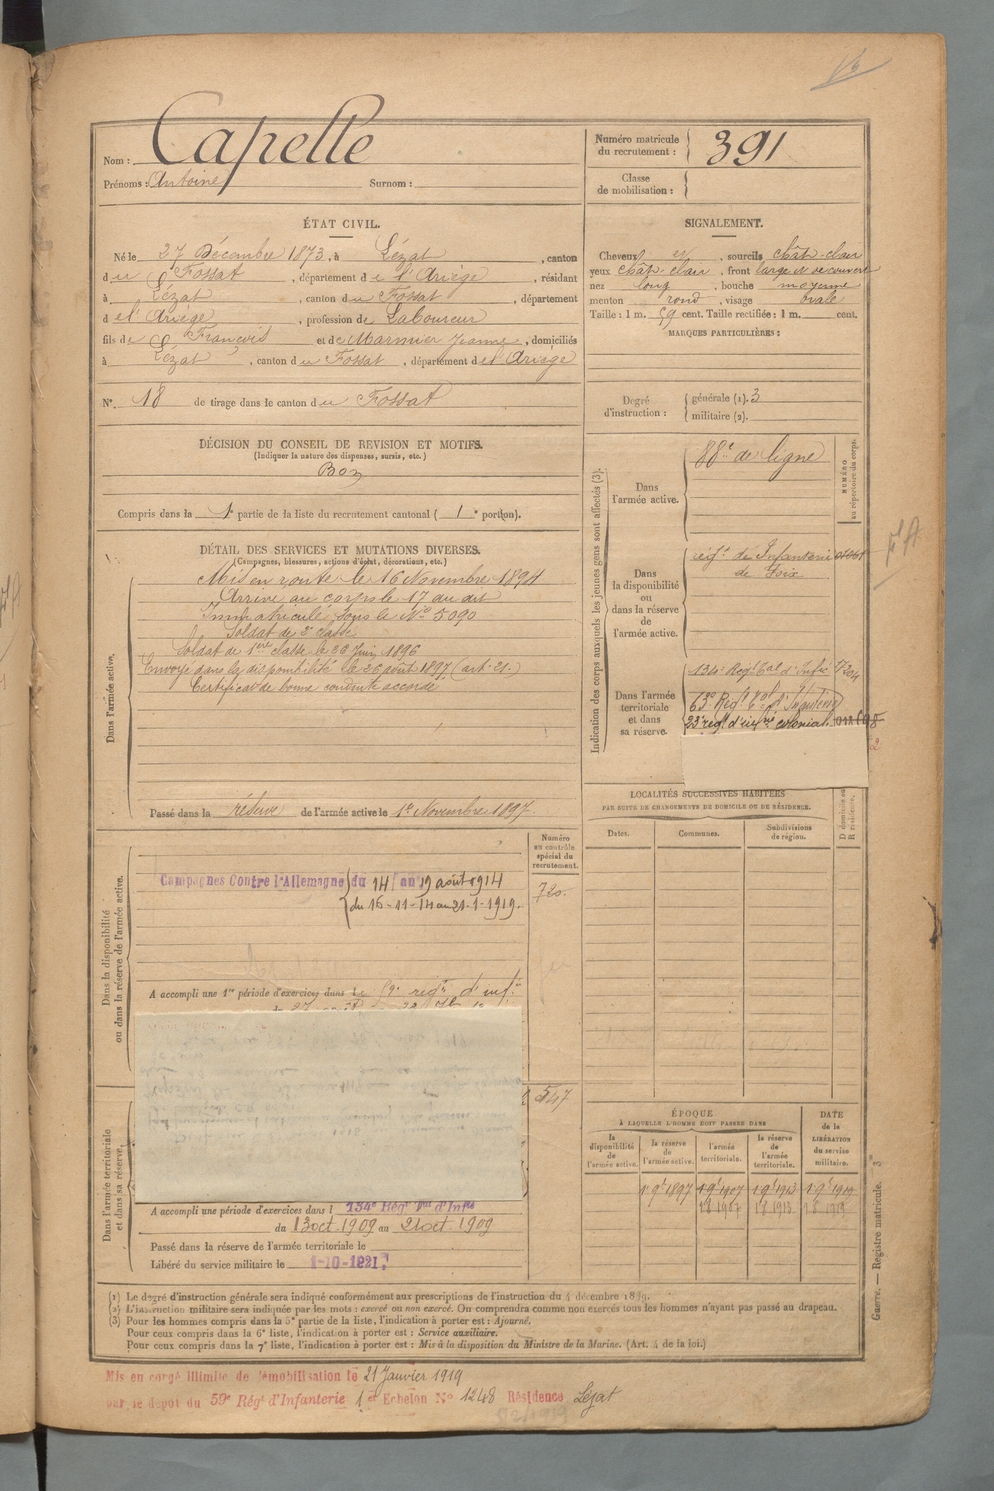 Nom : Capelle
Prénoms : Antoine Surnom :
Numéro matricule du recrutement : 391
Classe de mobilisation :
ÉTAT CIVIL.
Né le 27 Décembre 1873, à Lézat, canton
du Fossat, département de l'Ariège, résidant
à Lézat, canton du Fossat, département
de l'Ariège, profession de Laboureur
fils de François et de Marmier Jeanne, domiciliés
à Lézat, canton du Fossat, département de l'Ariège
N° 18 de tirage dans le canton du Fossat
SIGNALEMENT.
Cheveux et, sourcils chât-clair
yeux chât-clair, front large et découvert
nez long, bouche moyenne
menton rond, visage ovale
Taille : 1 m. 59 cent. Taille rectifiée : 1 m. cent.
MARQUES PARTICULIÈRES :
Degré d'instruction : générale (1). 3
militaire (2).
DÉCISION DU CONSEIL DE REVISION ET MOTIFS.
(Indiquer la nature des dispenses, sursis, etc.)
Bon
Compris dans la 1e partie de la liste du recrutement cantonal ( 1e portion).
DÉTAIL DES SERVICES ET MUTATIONS DIVERSES.
(Campagnes, blessures, actions d'éclat, décorations, etc.)
Dans l'armée active.
Mis en route le 16 Novembre 1894
Arrivé au corps le 17 du dit
Immatriculé sous le N° 5090
Soldat de 2e classe
Soldat de 1ère classe le 26 Juin 1896
Envoyé dans la disponibilité le 26 août 1897 (art. 21.)
Certificat de bonne conduite accordé
Passé dans la réserve de l'armée active le 1er Novembre 1897
Indication des corps auxquels les jeunes gens sont affectés (3).
NUMÉRO au répertoire du corps.
Dans l'armée active.
88e de ligne
Dans la disponibilité ou dans la réserve de l'armée active.
régt de Infanterie
de Foix
Dans l'armée territoriale et dans sa réserve.
134e Régt tal d'Infie
63e Régt tal d'Infanterie
23e régt d'infrie colonial
LOCALITÉS SUCCESSIVES HABITÉES
PAR SUITE DE CHANGEMENTS DE DOMICILE OU DE RÉSIDENCE.
Dates. Communes. Subdivisions de région. D domicile ou R résidence.
Dans la disponibilité ou dans la réserve de l'armée active.
Numéro au contrôle spécial du recrutement.
720.
Campagnes Contre l'Allemagne du 14 au 19 août 1914
du 16-11-14 au 21-1-1919.
A accompli une 1re période d'exercices dans le 59e régt d'inf.ie
547
Dans l'armée territoriale et dans sa réserve.
A accompli une période d'exercices dans l 134e Régt tal d'Infie
du 13 oct. 1909 au 21 oct. 1909
Passé dans la réserve de l'armée territoriale le
Libéré du service militaire le 1-10-1921
ÉPOQUE
À LAQUELLE L'HOMME DOIT PASSER DANS
la disponibilité de l'armée active. la réserve de l'armée active. l'armée territoriale. la réserve de l'armée territoriale.
DATE de la LIBÉRATION du service militaire.
1er 9e 1897 1er 9e 1907 1er 9e 1913 1er 9e 1919
1.8.1907 1.8.1913 1.8.1919
(1) Le degré d'instruction générale sera indiqué conformément aux prescriptions de l'instruction du 4 décembre 1889.
(2) L'instruction militaire sera indiquée par les mots : exercé ou non exercé. On comprendra comme non exercés tous les hommes n'ayant pas passé au drapeau.
(3) Pour les hommes compris dans la 5e partie de la liste, l'indication à porter est : Ajourné.
Pour ceux compris dans la 6e liste, l'indication à porter est : Service auxiliaire.
Pour ceux compris dans la 7e liste, l'indication à porter est : Mis à la disposition du Ministre de la Marine. (Art. 4 de la loi.)
Guerre. — Registre matricule. 3
Mis en congé illimité de démobilisation le 21 Janvier 1919
par le dépôt du 59e Régt d'Infanterie 1er Echelon N° 1248 Résidence Lézat